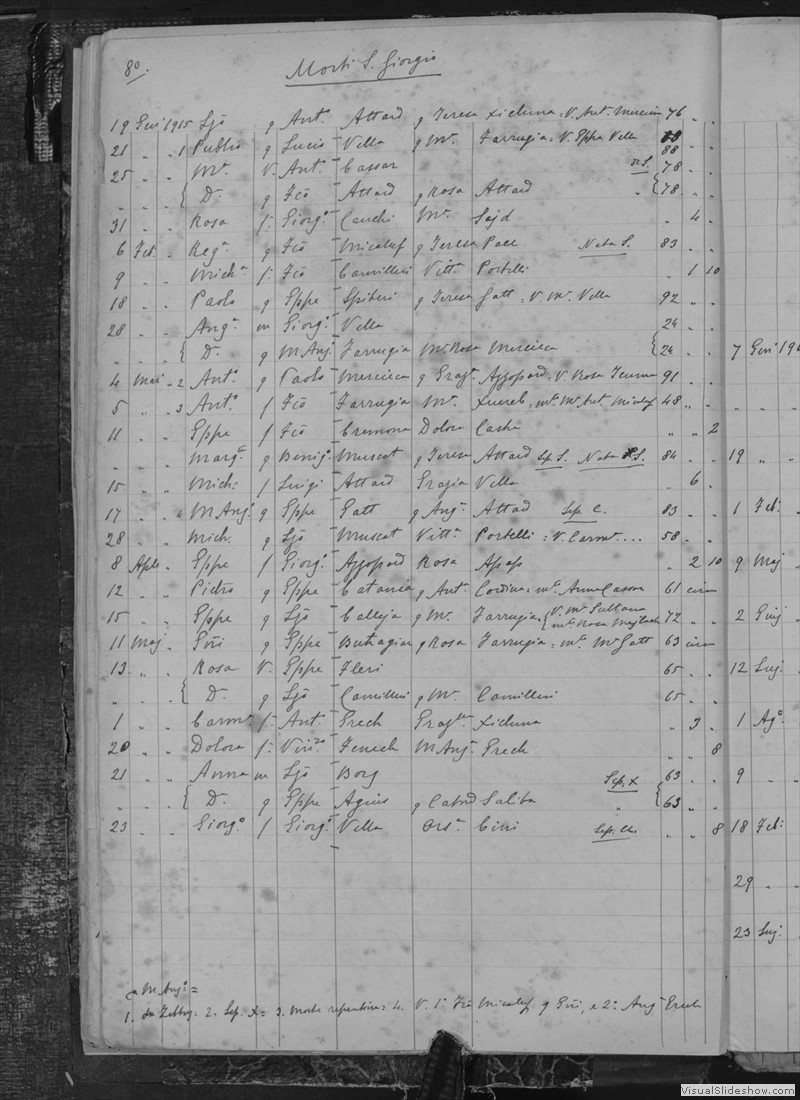 80.
Morti S. Giorgio
19 Gen 1915 Ljō q Ant° Attard q Teresa Xicluna = V. Ant. 76 " "
21 " " 1 Publio q Lucio Vella q Mª Farrugia = V. Gppe Vella 88 " "
25 " " Mª V. Ant° Cassar 78 " "
" " " D. q Fcō Attard q Rosa Attard " 78 " "
31 " " Rosa f. Giorg° Cauchi Mª Sajd " 4 "
6 Feb. " Regª q Fcō Micallef q Teresa Pace Nata S. 83 " "
9 " " Mich. f. Fcō Camilleri Vittª Portelli " 1 10
18 " " Paolo q Gppe Spiteri q Teresa Gatt = V. Mª Vella 92 " "
28 " " Ang. m Giorg° Vella 24 " "
" " " D. q M Ang. Farrugia Mª Rosa Mercieca 24 " " 7 Gen 19
4 Mar " 2 Ant° q Paolo Mercieca q Grazª Azzopard = V. Rosa 91 " "
5 " " 3 Ant° f Fcō Farrugia Mª Xuereb, mª Mª Ant. Micalef 48 " " " "
11 " " Gppe f Fcō Cremona Dolora " " 2
" " " Margª q Benig° Muscat q Teresa Attard Sep. S. Nata S. 84 " " 19 " "
15 " " Mich. f Luigi Attard Grazia Vella " 6 "
17 " " 4 M Ang. q Gppe Gatt q Ang. Attard Sep. C. 83 " " 1 Feb.
28 " " Mich. q Ljō Muscat Vittª Portelli = V. Carmª ... 58 " "
8 Aple " Gppe f Giorg° Azzopard Rosa Apap " 2 10 9 Maj "
12 " " Pietro q Gppe Catania q Ant. Cordina = mª Anna Cassar 61 circa
15 " " Gppe q Ljō Calleja q Mª Farrugia = V. Mª Sultana mª Rosa 72 " " 2 Giuj "
11 Maj " Gñi q Gppe Buhagiar q Rosa Farrugia = mª Mª Gatt 63 circa
13 " " Rosa V. Gppe Fleri 65 " " 12 Luj.
" " " D. q Ljō Camilleri q Mª Camilleri 65 " "
1 " " Carmª f. Ant. Grech Grazª Xicluna " 3 " 1 Ag°
20 " " Dolora f. Vinc° Fenech M Ang. Grech " " 8
21 " " Anna m Ljō Borg Sep. X 63 " " 9 " "
" " " D. q Gppe Agius q Catnª Saliba " 63 " "
23 " " Giorg° f Giorg° Vella Orsª Cini " " 8 18 Feb.
29 " "
23 Luj.
M. Ang. =
1. da Zebbug = 2. Sep. X = 3. Morte repentina = 4. V. 1° Fcō Micalef q Gñi, e 2° Ang. Grech
VisualSlideshow.com